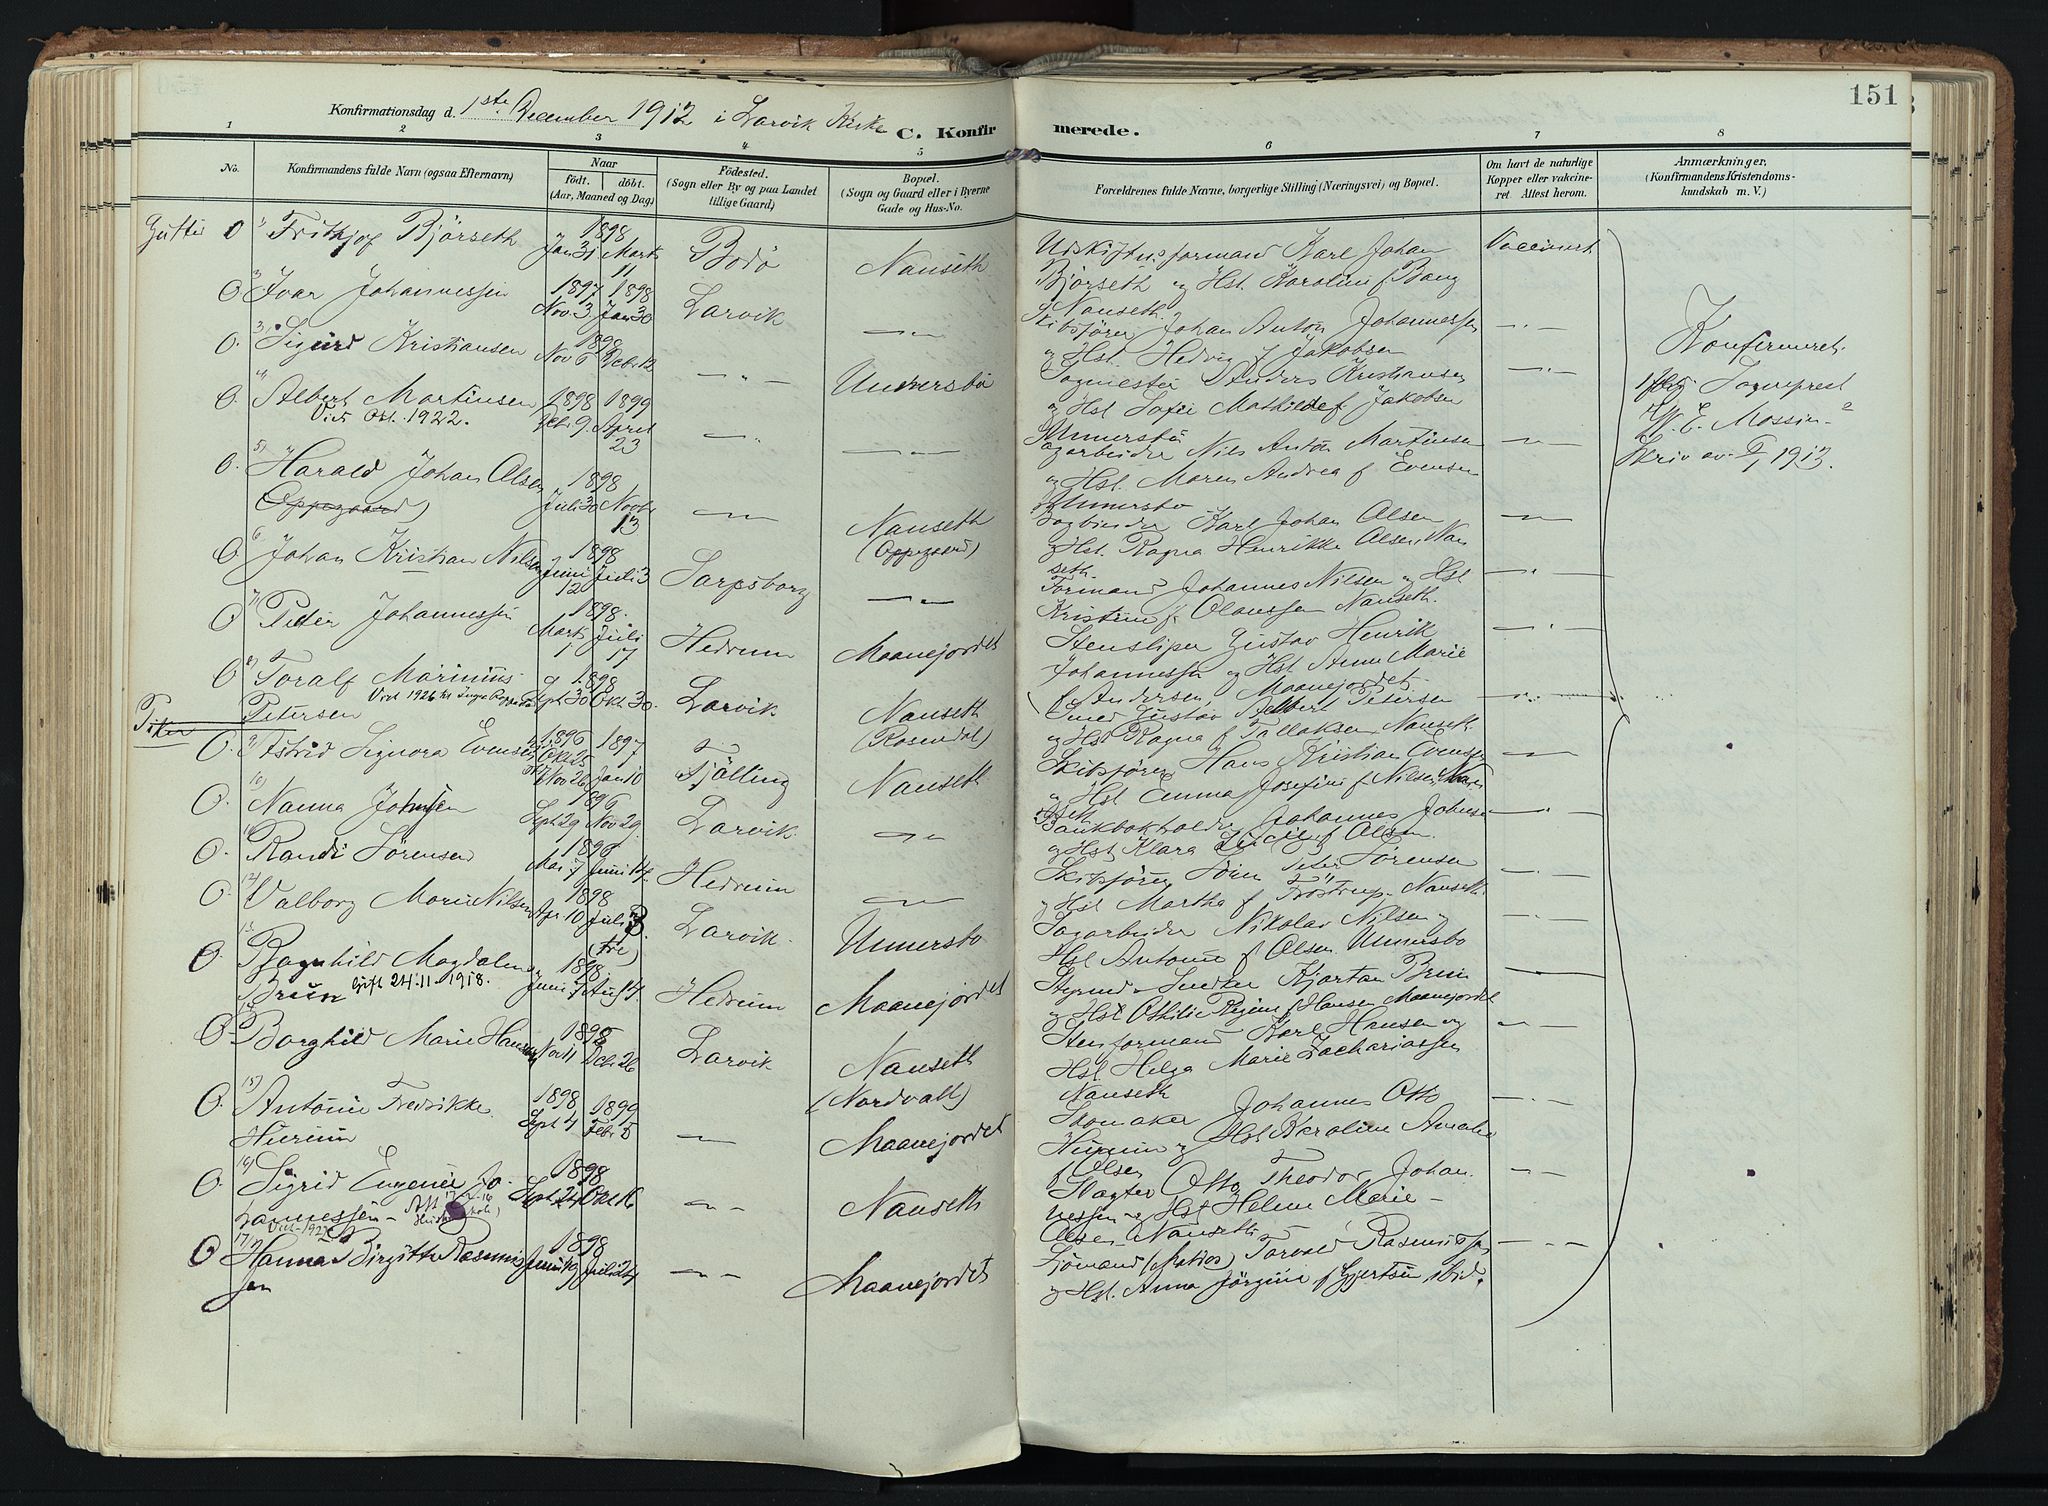 151
Konfirmationsdag d. 1ste December 1912 i Larvik Kirke
C. Konfirmerede.
1 2 3 4 5 6 7 8
No.
Konfirmandens fulde Navn (ogsaa Efternavn)
Naar
födt. döbt.
(Aar, Maaned og Dag)
Födested.
(Sogn eller By og paa Landet
tillige Gaard)
Bopæl.
(Sogn og Gaard eller i Byerne
Gade og Hus-No.
Forældrenes fulde Navne, borgerlige Stilling (Næringsvei) og Bopæl.
Om havt de naturlige
Kopper eller vakcine-
ret. Attest herom.
Anmærkninger,
(Konfirmandens Kristendoms-
kundskab m. V.)
Gutter O 1) Fritkjof Björseth 1898 Jan 31 Marts 11 Bodö Nanseth
Karl Johan
Björseth og Hst. Karoline f Bang
Nanseth
Vaccinert
O 2) Ivar Johannessen 1897 Nov. 3 1898 Jan 30 Larvik — " —
Skibsförer Johan Anton Johannessen
og Hst. Hedvig f Jakobsen
— " —
O. 3) Sigurd Kristiansen 1898 Nov 6 Debr 12 — " — Unnersbö
Anders Kristiansen
og Hst. Sofie Mathilde f Jakobsen
Unnersbö
— " —
O. 4) Albert Martinsen 1898 Dcb. 9 1899 April 23 — " — — " —
Viet Okt. 1922.
Nils Anton Martinsen
og Hst. Maren Andrea f Evensen
Unnersbö
— " —
O. 5) Harald Johan Olsen 1898 Juli 30 Novbr 13 — " — Nanseth
Oppegaard) (Oppegaard)
Karl Johan Olsen
og Hst. Ragna Henrikke Olsen, Nan
seth.
— " —
O 6) Johan Kristian Nilsen 1898 Juni 12 Juli 3 Sarpsborg — " —
Formand Johannes Nilsen og Hst
Kristine f. Olaussen Nanseth.
— " —
O 7) Peder Johannessen 1898 Marts 1 Juli 17 Hedrum Maanejordet
Stensliper Gustav Henrik
Johannessen og Hst. Anne Marie
f. Andersen, Maanejordet
— " —
O 8) Toralf Marinius 1898 Spt 30 Okt 30. Larvik Nanseth
Petersen (Rosendal)
Smed Gustav Albert Petersen
og Hst Ragna f Tallaksen Nanseth
— " —
Piker
O. 9) Astrid Signora Evensen 1896 Nov 26 1897 Jan 10 Tjölling Nanseth
Skibsförer Hans Kristian Evensen
og Hst Emma Josefine f Nilsen, Nan
seth
— " —
O. 10) Nanna Johnsen 1896 Spt 29 Nov 29 Larvik. — " —
Bankbokholder Johannes Johnsen
og Hst. Klara f Olsen.
— " —
O. 11) Randi Sörensen Mai 7 Juni 14 Hedrum — " —
Skibsförer Sören Peter Sörensen
og Hst Martha f Tröstrup. Nanseth
— " —
O. 12) Valborg Marie Nilsen 1898 Apr 10 Juli 3. Larvik. Unnersbö
(tre)
Sagarbeider Nikolai Nilsen og
Hst Antonie f Olsen Unnersbo
— " —
O. 13) Ragnhild Magdalene 1898 Juni 7 Aug 14 Hedrum Maanejordet
Bruun Gift 24.11.1918.
Kjartan Bruun
og Hst Othilie Regine f Hansen Maanejordet
— " —
O. 14) Borghild Marie Hansen Nov 11 Debr 26 Larvik Nanseth
(Nordvall)
Stenformand Karl Hansen og
Hst Helga Marie Zachariassen
Nanseth
— " —
O. 15) Antonie Fredrikke 1898 Spt 4 1899 Febr 5 — " — Maanejordet
Hurum
Skomaker Johannes Otto
Hurum og Hst Karoline Amalie
f Olsen
— " —
O. 16) Sigrid Eugenie Jo- 1898 Spt 24 Okt 16 — " — Nanseth
hannessen
Slagter Otto Theodor Johan
nessen og Hst Helene Marie
Olsen Nanseth
— " —
O 17) Hanna Birgitte Rasmus 1898 Juni 19 Juli 24 — " — Maanejordet
sen
Sjömand (Matros) Torvald Rasmussen
og Hst. Anna Jörgine f Gjertsen ibid.
— " —
Konfirmeret
iflg. Sogneprest
W. E. Mossin
Skriv av 1913.